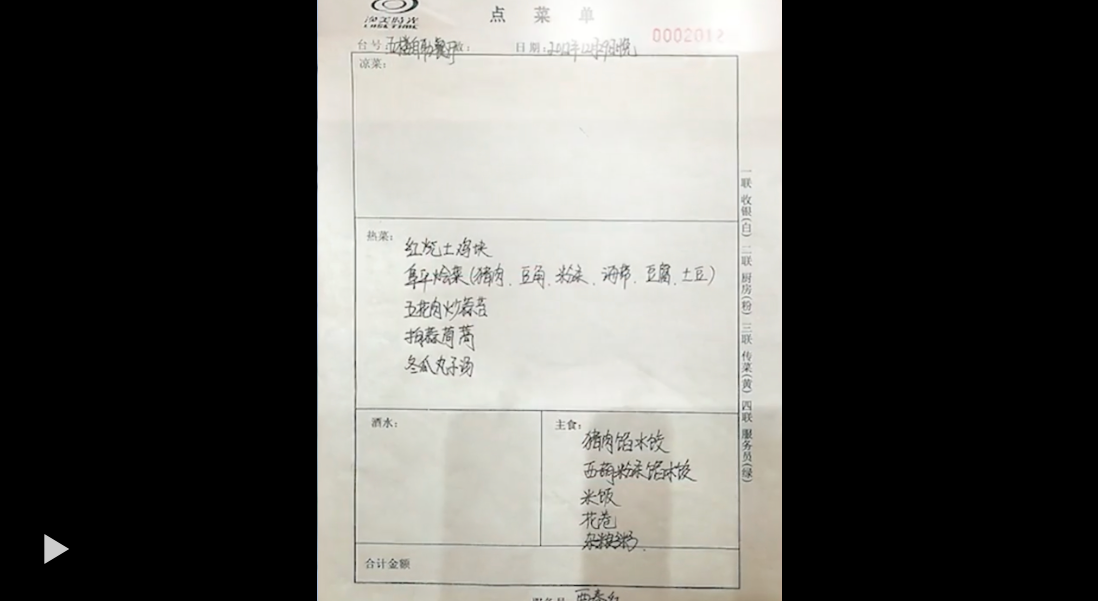 点菜单
0002012
台号:五楼自助餐厅 数: 日期:2012年12月29日晚
凉菜:
热菜:
红烧土鸡块
阜平烩菜(猪肉、豆角、粉条、海带、豆腐、土豆)
五花肉炒蒜苔
拍蒜茼蒿
冬瓜丸子汤
酒水:
主食:
猪肉馅水饺
西葫粉条馅水饺
米饭
花卷
杂粮粥
合计金额
服务员:
一联 收银(白) 二联 厨房(粉) 三联 传菜(黄) 四联 服务员(绿)